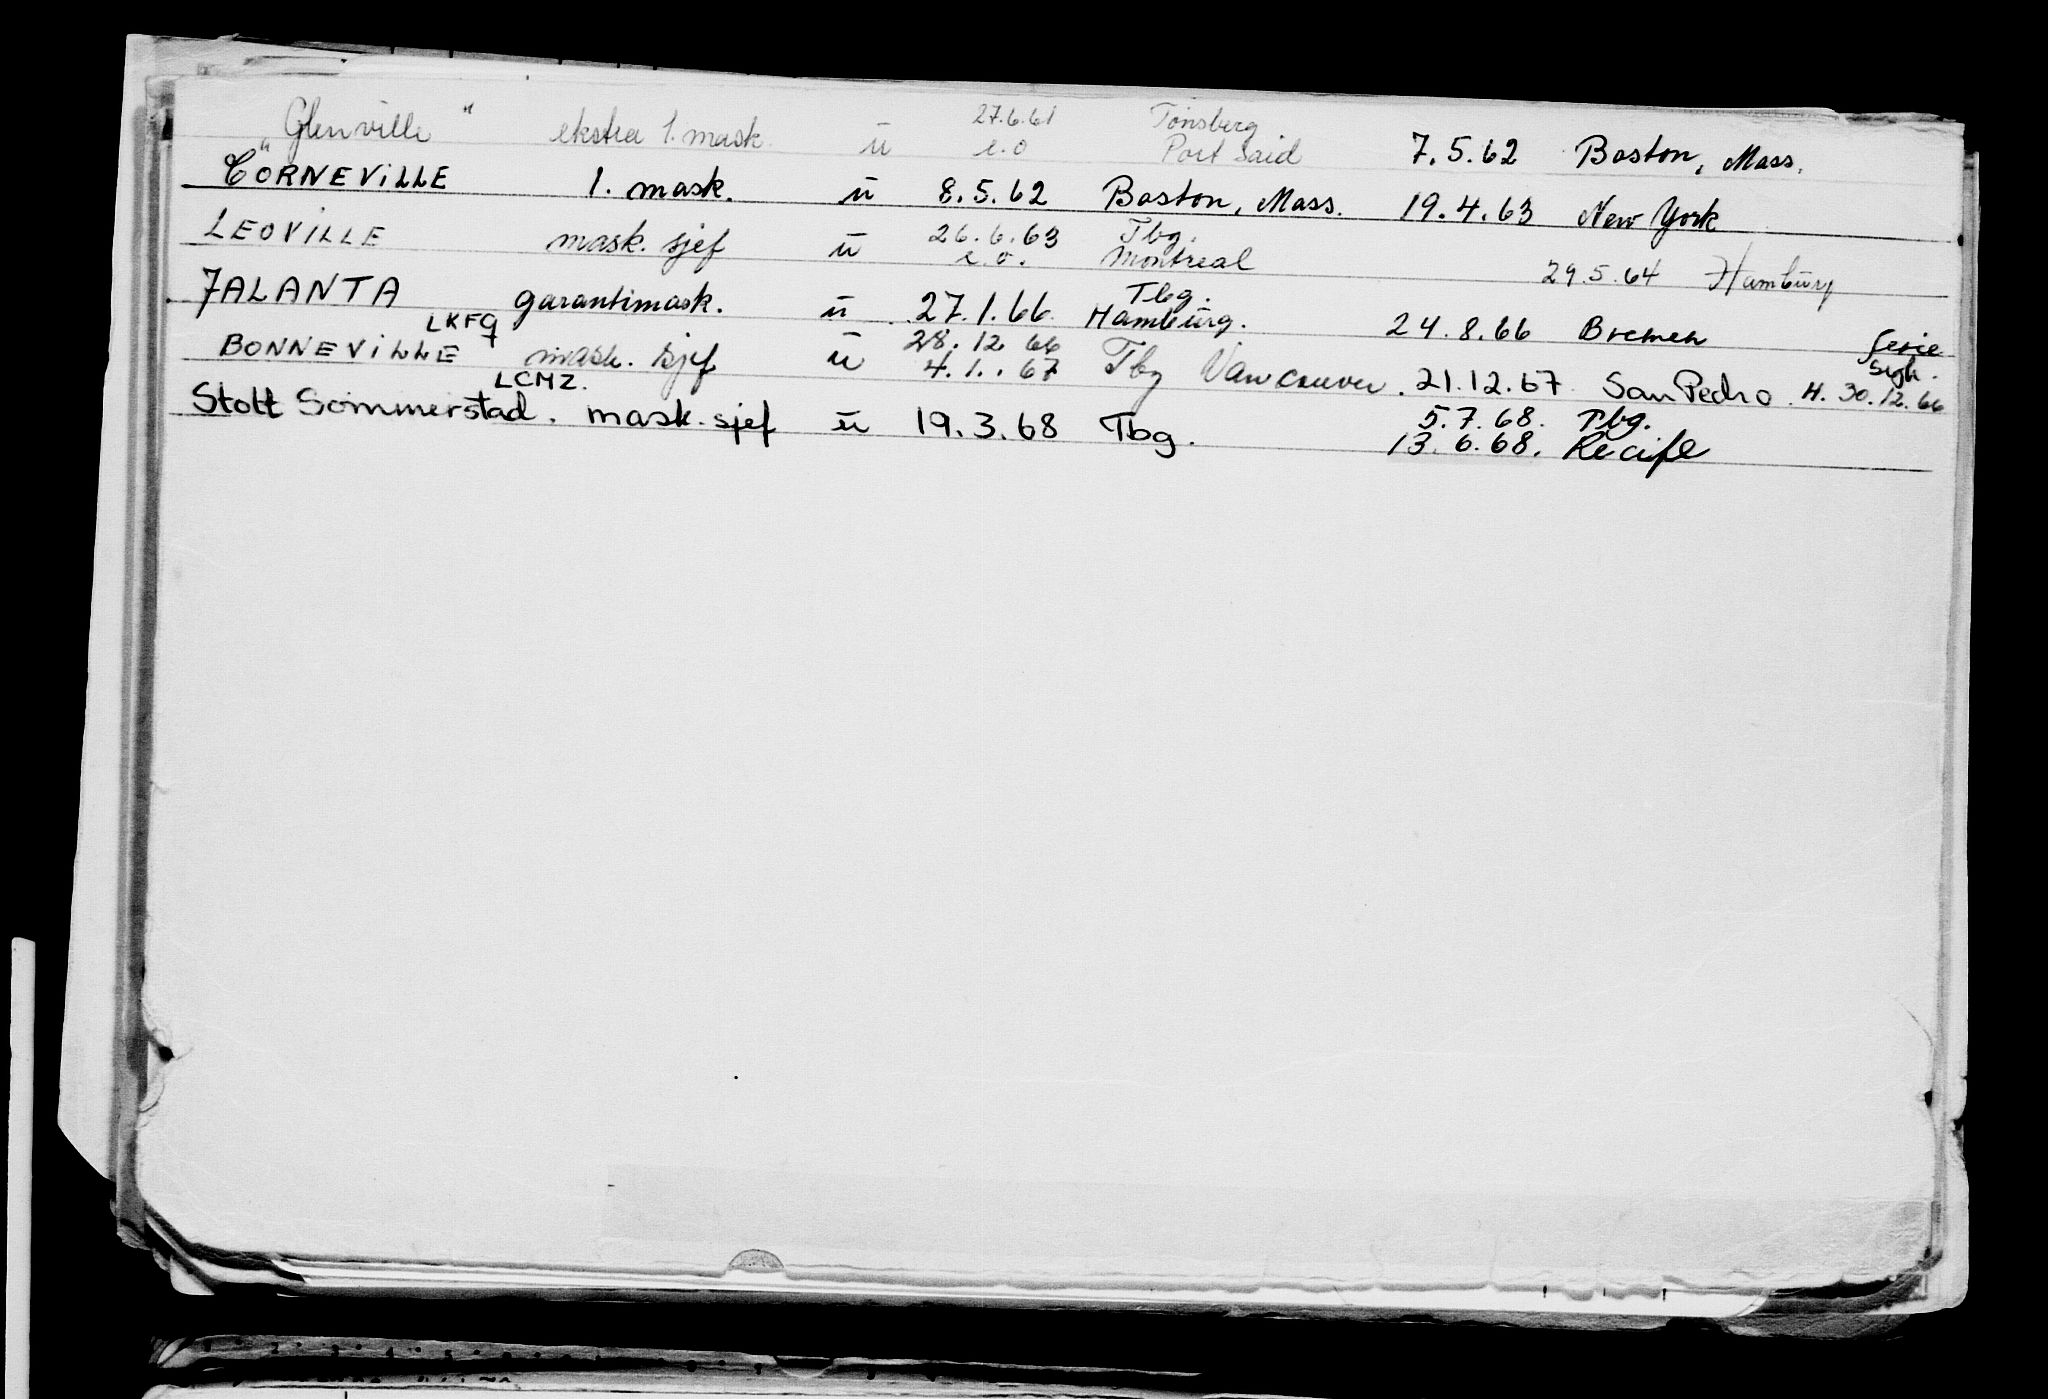 "Glenville" ekstra 1. mask. u 27.6.61 e.o Tønsberg Port Said 7.5.62 Boston, Mass.
CORNEVILLE 1. mask. u 8.5.62 Boston, Mass. 19.4.63 New York
LEOVILLE mask. sjef u 26.6.63 e.o. Tbg. Montreal 29.5.64 Hamburg
JALANTA garantimask. u 27.1.66 Tbg. Hamburg. 24.8.66 Bremen
BONNEVILLE LKFG mask. sjef u 28.12 66 4.1.67 Tbg Vancouver. 21.12.67 San Pedro H. 30.12.66
Stolt Sommerstad. LCMZ. mask. sjef u 19.3.68 Tbg. 5.7.68. Tbg.
13.6.68. Recife